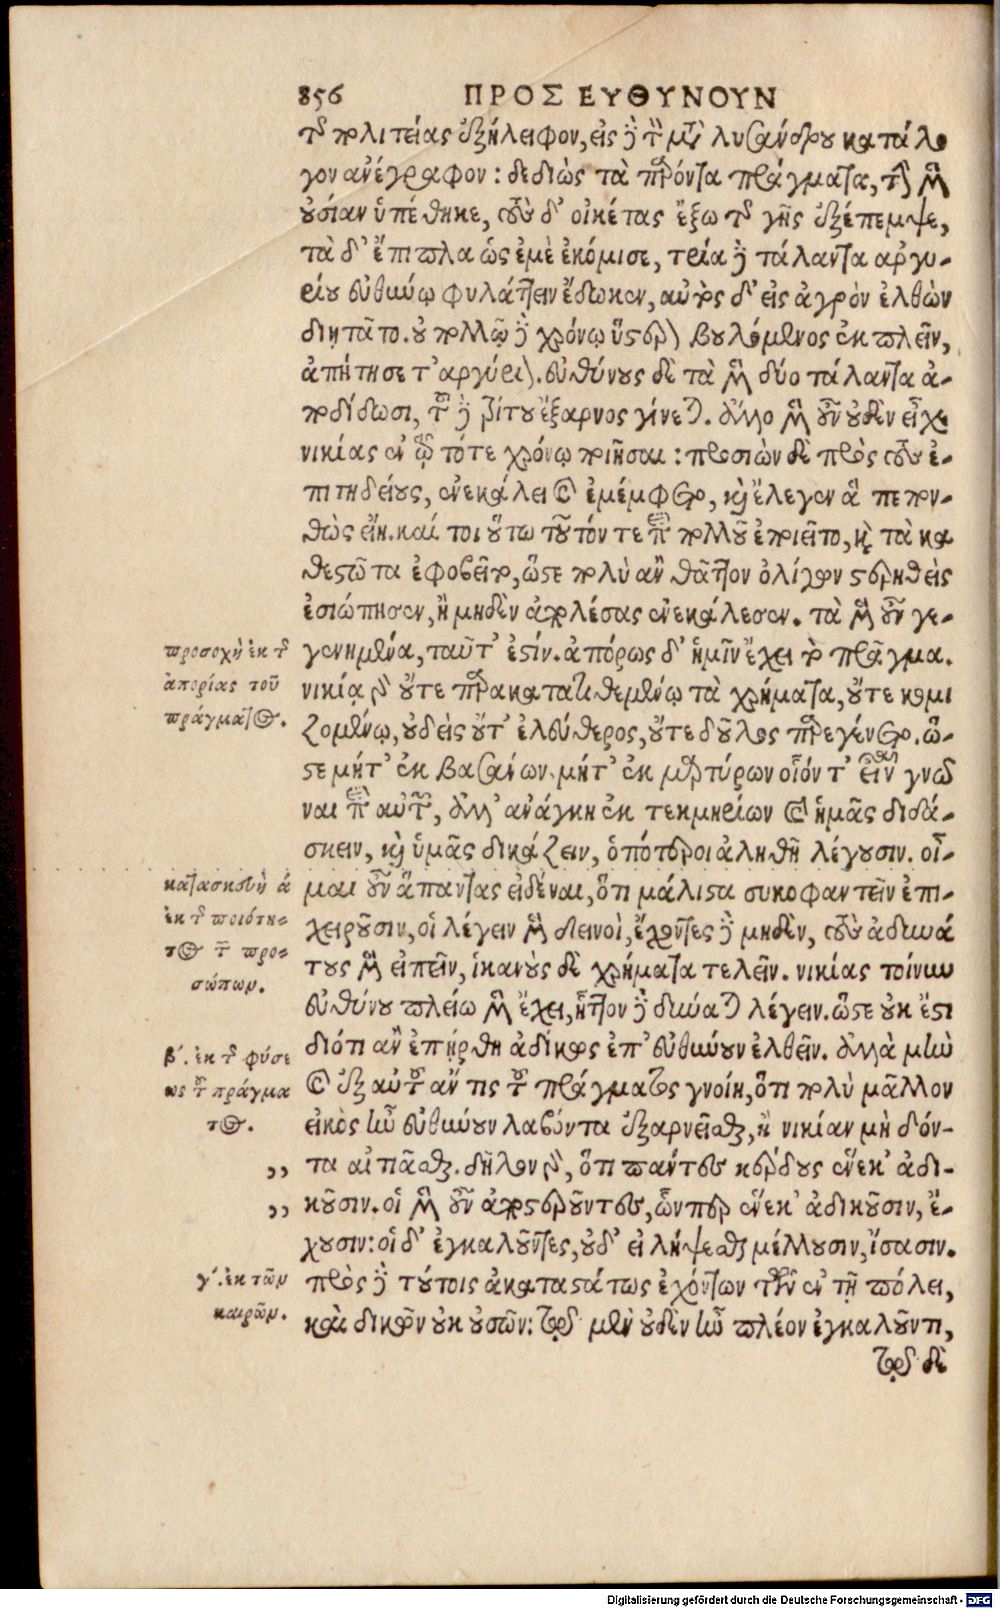 856 ΠΡΟΣ ΕΥΘΥΝΟΥΝ
τῆς πολιτείας ἐξήλειφον, εἰς δὲ τὸν μετὰ λυσάνδρου κατάλο
γον ἀνέγραφον: δεδιὼς τὰ παρόντα πράγματα, τὴν μὲν
οὐσίαν ὑπέθηκε, τοὺς δ' οἰκέτας ἔξω τῆς γῆς ἐξέπεμψε,
τὰ δ' ἔπιπλα ὡς ἐμὲ ἐκόμισε, τρία δὲ τάλαντα ἀργυ-
ρίου εὐθύνῳ φυλάττειν ἔδωκεν, αὐτὸς δ' εἰς ἀγρὸν ἐλθὼν
διῃτᾶτο. οὐ πολλῷ δὲ χρόνῳ ὕστερον βουλόμενος ἐκπλεῖν,
ἀπῄτησε τ' ἀργύριον. εὐθύνους δὲ τὰ μὲν δύο τάλαντα ἀ-
ποδίδωσι, τοῦ δὲ τρίτου ἔξαρνος γίνεται. ἄλλο μὲν οὖν οὐδὲν εἶχε
νικίας ἐν τῷ τότε χρόνῳ ποιῆσαι: προσιὼν δὲ πρὸς τοὺς ἐ-
πιτηδείους, ἐνεκάλει καὶ ἐμέμφετο, καὶ ἔλεγεν ἃ πεπον-
θὼς εἴη. καί τοι οὕτω τοῦτόν τε περὶ πολλοῦ ἐποιεῖτο, καὶ τὰ κα
θεστῶτα ἐφοβεῖτο, ὥστε πολὺ ἂν θᾶττον ὀλίγον στερηθεὶς
ἐσιώπησεν, ἢ μηδὲν ἀπολέσας ἐνεκάλεσεν. τὰ μὲν οὖν γε-
προσοχὴ ἐκ τῆς
γενημένα, ταῦτ' ἐστίν. ἀπόρως δ' ἡμῖν ἔχει τὸ πρᾶγμα.
ἀπορίας τοῦ
νικίᾳ γὰρ οὔτε παρακαταθεμένῳ τὰ χρήματα, οὔτε κομι
πράγματος.
ζομένῳ, οὐδεὶς οὔτ' ἐλεύθερος, οὔτε δοῦλος παρεγένετο. ὥ-
στε μήτ' ἐκ βασάνων. μήτ' ἐκ μαρτύρων οἷόν τ' εἶναι γνῶ
ναι περὶ αὐτῶν, ἀλλ' ἀνάγκη ἐκ τεκμηρίων καὶ ἡμᾶς διδά-
σκειν, καὶ ὑμᾶς δικάζειν, ὁπότεροι ἀληθῆ λέγουσιν. οἶ-
κατασκευὴ ά
μαι οὖν ἅπαντας εἰδέναι, ὅτι μάλιστα συκοφαντεῖν ἐπι-
ἐκ τῆς ποιότη-
χειροῦσιν, οἱ λέγειν μὲν δεινοὶ, ἔχοντες δὲ μηδὲν, τοὺς ἀδυνά
τος τῶν προ-
τους μὲν εἰπεῖν, ἱκανοὺς δὲ χρήματα τελεῖν. νικίας τοίνυν
σώπων.
εὐθύνου πλείω μὲν ἔχει, ἧττον δὲ δύναται λέγειν. ὥστε οὐκ ἔστι
διότι ἂν ἐπήρθη ἀδίκως ἐπ' εὐθύνουν ἐλθεῖν. ἀλλὰ μὴν
β'. ἐκ τῆς φύσε
καὶ ἐξ αὐτοῦ ἄν τις τοῦ πράγματος γνοίη, ὅτι πολὺ μᾶλλον
ως τοῦ πράγμα
εἰκὸς ἦν εὐθύνουν λαβόντα ἐξαρνεῖσθαι, ἢ νικίαν μὴ δόν-
τος.
,, τα αἰτιᾶσθαι. δῆλον γὰρ, ὅτι πάντες κέρδους ἕνεκ' ἀδι-
,, κοῦσιν. οἱ μὲν οὖν ἀποστεροῦντες, ὧνπερ ἕνεκ' ἀδικοῦσιν, ἔ-
χουσιν: οἱ δ' ἐγκαλοῦντες, οὐδ' εἰ λήψεσθαι μέλλουσιν, ἴσασιν.
γ'. ἐκ τῶν
πρὸς δὲ τούτοις ἀκαταστάτως ἐχόντων τῶν ἐν τῇ πόλει,
καιρῶν.
καὶ δικῶν οὐκ οὐσῶν: τῷ μὲν οὐδὲν ἦν πλέον ἐγκαλοῦντι,
τῷ δὲ
Digitalisierung gefördert durch die Deutsche Forschungsgemeinschaft - DFG